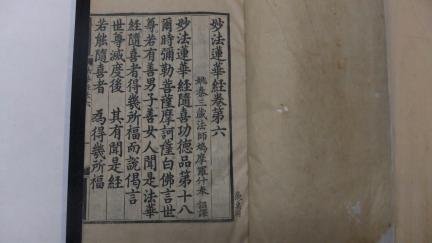 妙法蓮華經卷第六
姚秦三藏法師鳩摩羅什奉 詔譯
妙法蓮華經隨喜功德品第十八
爾時彌勒菩薩摩訶薩白佛言世
尊若有善男子善女人聞是法華
經隨喜者得幾所福而說偈言
世尊滅度後 其有聞是經
若能隨喜者 為得幾所福